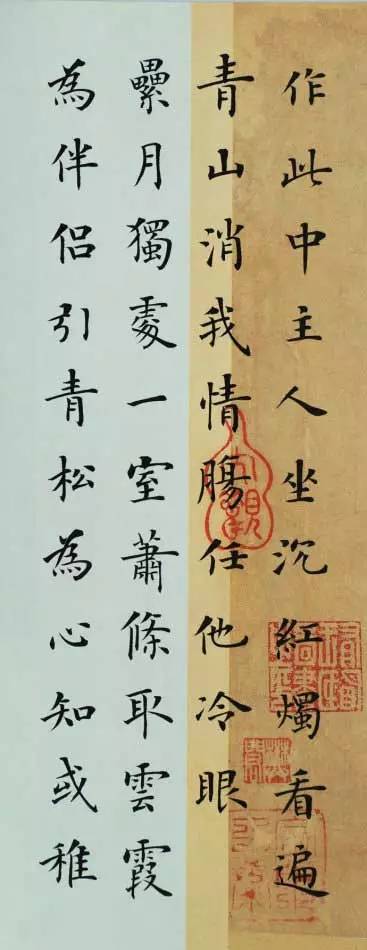 作此中主人坐沉紅燭看遍
青山消我情腸任他冷眼
纍月獨處一室蕭條取雲霞
為伴侣引青松為心知或稚